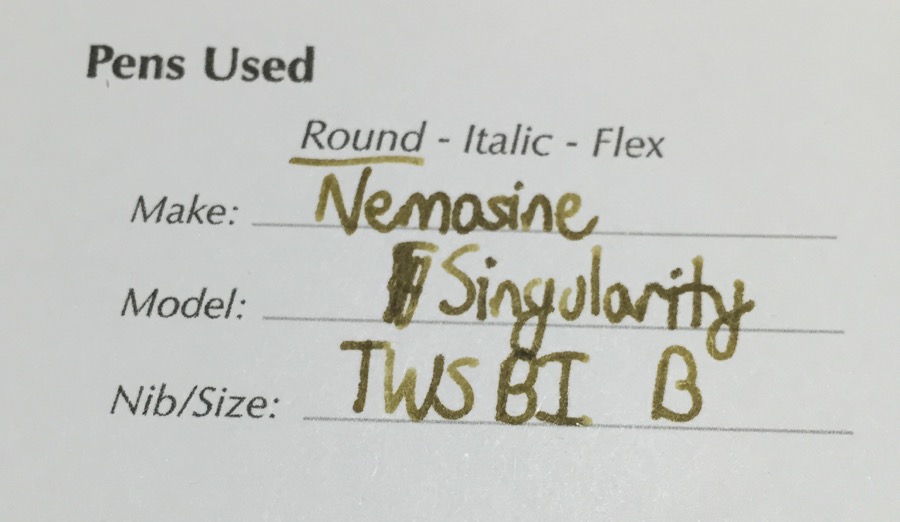 Pens Used
Round - Italic - Flex
Make: Nemosine
Model: Singularity
Nib/Size: TWSBI B